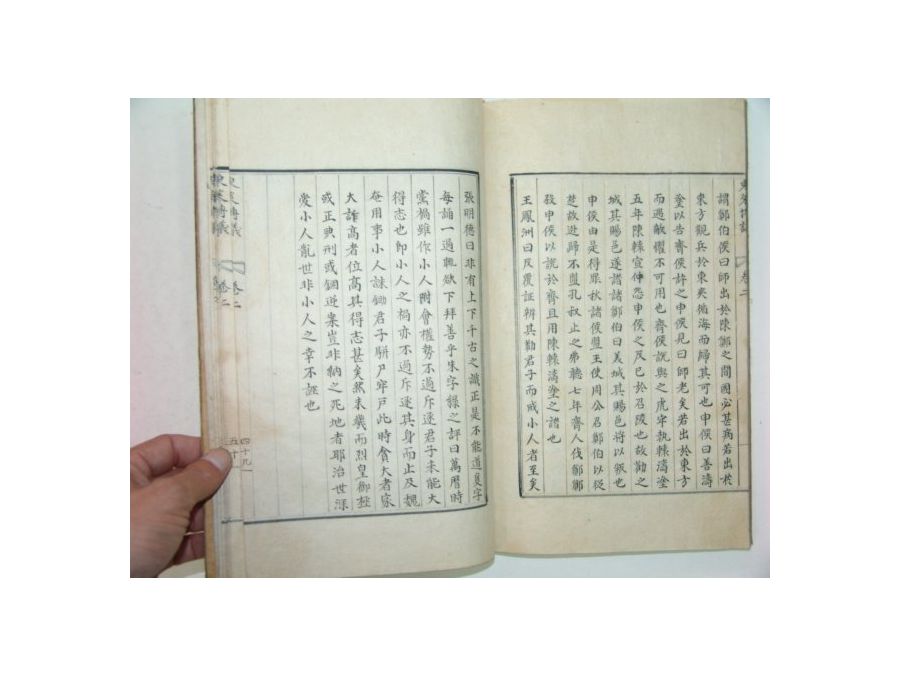 謂鄭伯侯曰師出於陳鄭之間國必甚病若出於
東方觀兵於東夷循海而歸其可也申侯曰善濤
塗以告齊侯許之申侯見曰師老矣若出於東方
而遇敵懼不可用也齊侯說與之虎牢執陳濤塗
五年陳轅宣仲怨申侯之反己於召陵也故勸之
城其賜邑遂譖諸鄭伯曰美城其賜邑將以叛也
申侯由是得罪秋諸侯盟王使周公召鄭伯以從
楚故逃歸不盟孔叔止之弗聽七年齊人伐鄭鄭
殺申侯以說於齊且用陳轅濤塗之譖也
王鳳洲曰反覆証辨其勸君子而戒小人者至矣
張明德曰非有上下千古之識正是不能道隻字
每誦一過輒欲下拜善乎朱字綠之評曰萬曆時
黨禍雖作小人附會權勢不過斥逐君子未能大
得志也即小人之禍亦不過斥逐其身而止及魏
奄用事小人誅鋤君子駢尸牢戶此時貪大者家
大詐高者位高其得志甚矣然未幾而烈皇御極
或正典刑或錮逆案豈非納之死地者耶治世深
愛小人亂世非小人之幸不誣也
東萊博議
卷二
四十九
五十
東萊博議
卷二